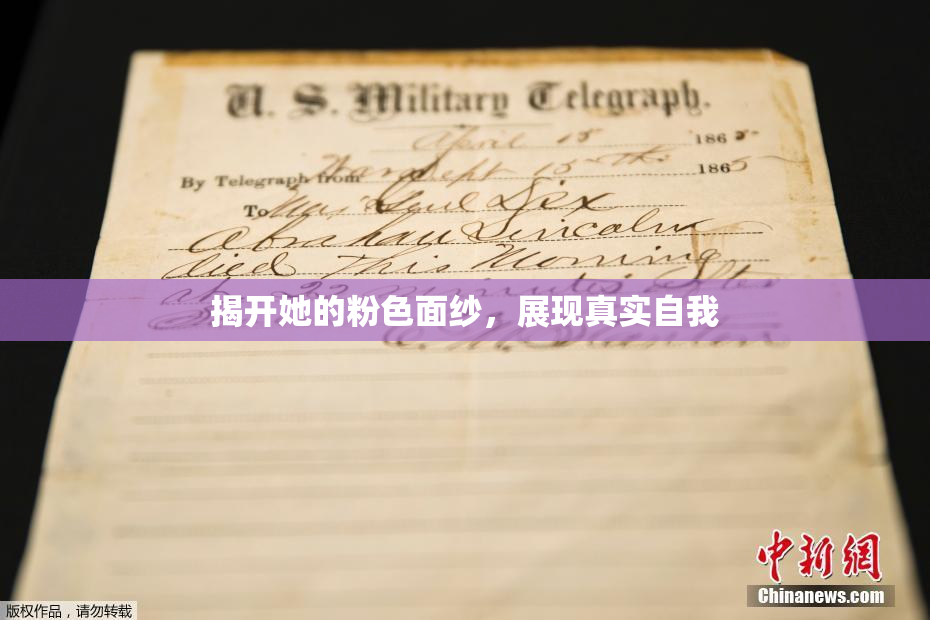 U. S. Military Telegraph.
April 15 1865
By Telegraph from War Dept 15th 1865
To Maj Genl Dix
Abraham Lincoln
died This Morning
at 22 minutes after
揭开她的粉色面纱，展现真实自我
E. M. Stanton
中新网
Chinanews.com
版权作品，请勿转载